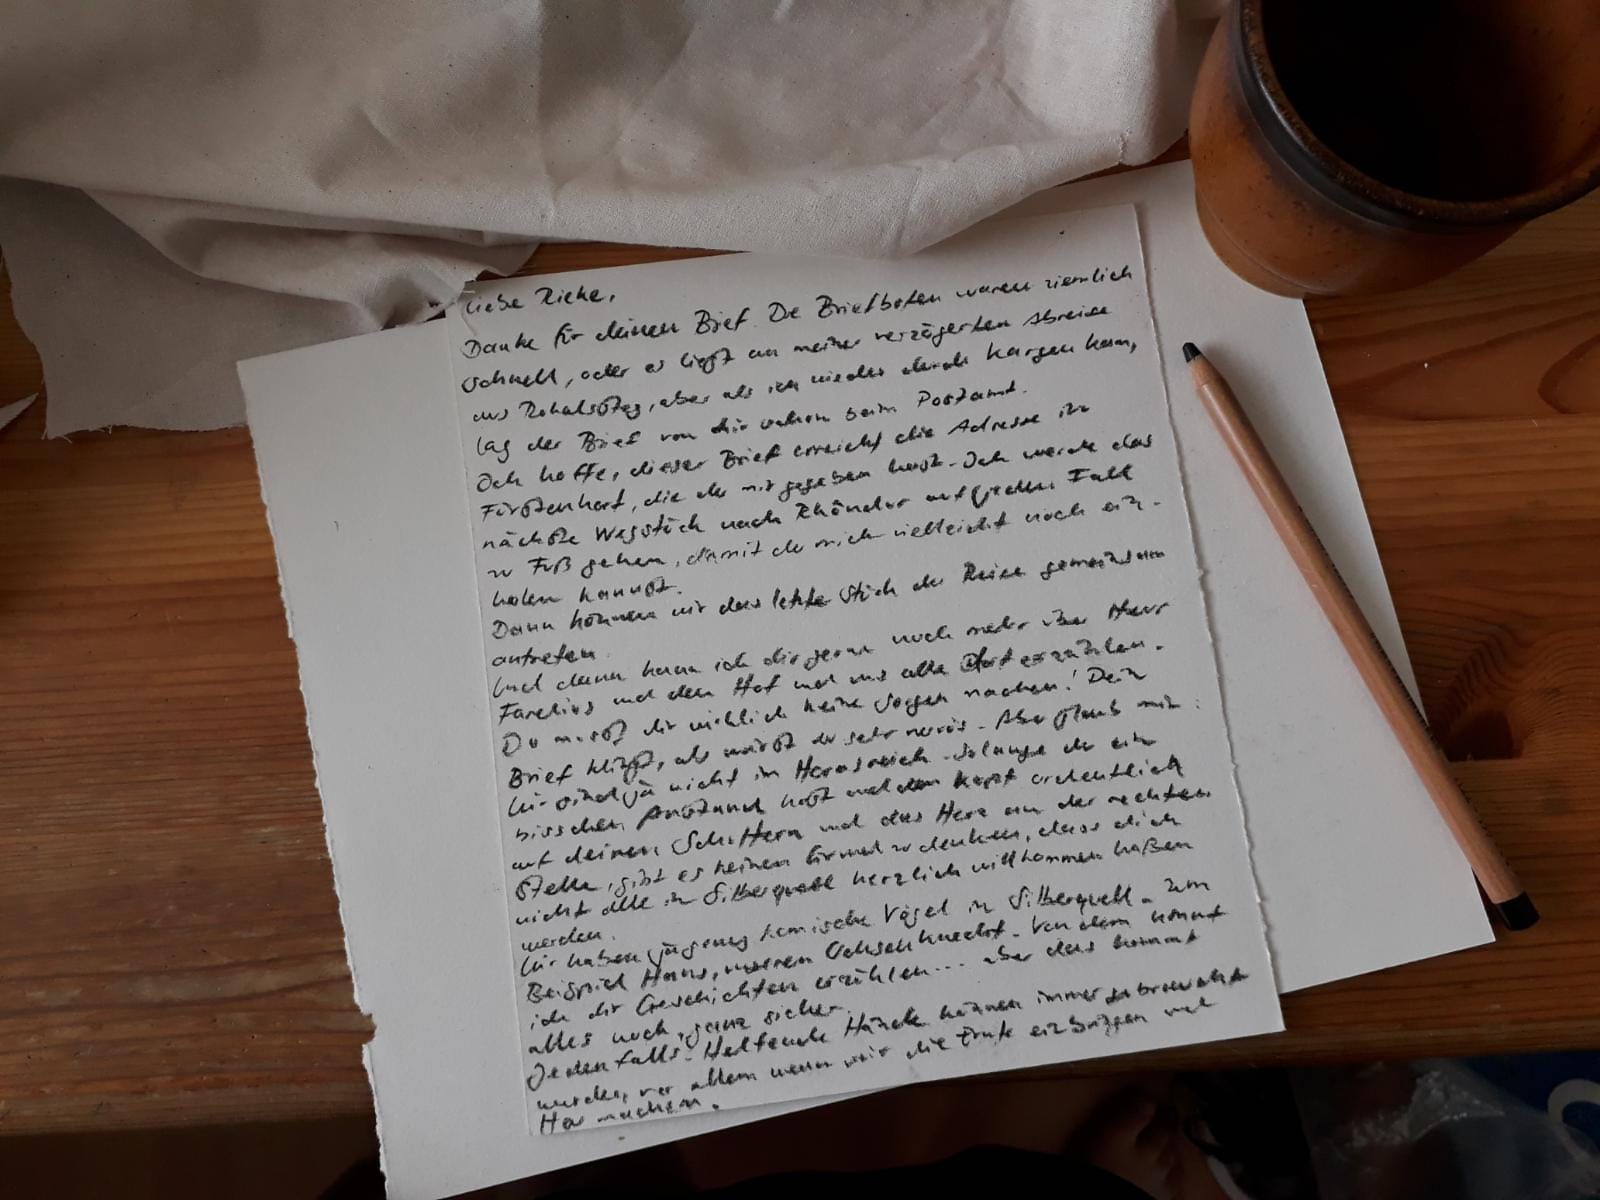 Liebe Rieke,
Danke für deinen Brief. Die Briefboten waren ziemlich
schnell, oder es liegt an meiner verzögerten Abreise
aus Rohalssteg, aber als ich wieder durch Kargen kam,
lag der Brief von dir schon beim Postamt.
Ich hoffe, dieser Brief erreicht die Adresse in
Fürstenhort, die du mir gegeben hast. Ich werde das
nächste Wegstück nach Rhôndur auf jeden Fall
zu Fuß gehen, damit du mich vielleicht noch ein-
holen kannst.
Dann können wir das letzte Stück der Reise gemeinsam
antreten.
Und dann kann ich dir gerne noch mehr über Herr
Farelius und den Hof und uns alle dort erzählen.
Du musst dir wirklich keine Sorgen machen! Dein
Brief klingt, als wärst du sehr nervös. Aber glaub mir:
Wir sind ja nicht in Hornsreich. Solange du ein
bisschen Anstand hast und den Kopf ordentlich
auf deinen Schultern und das Herz an der rechten
Stelle, gibt es keinen Grund zu denken, dass dich
nicht alle in Silberquell herzlich willkommen heißen
werden.
Wir haben ja genug komische Vögel in Silberquell. Zum
Beispiel Hans, unseren Ochsenknecht. Von dem könnt
ich dir Geschichten erzählen... aber das kommt
alles noch, ganz sicher.
Jedenfalls: Helfende Hände können immer gebraucht
werden, vor allem wenn wir die Ernte einbringen und
Heu machen.